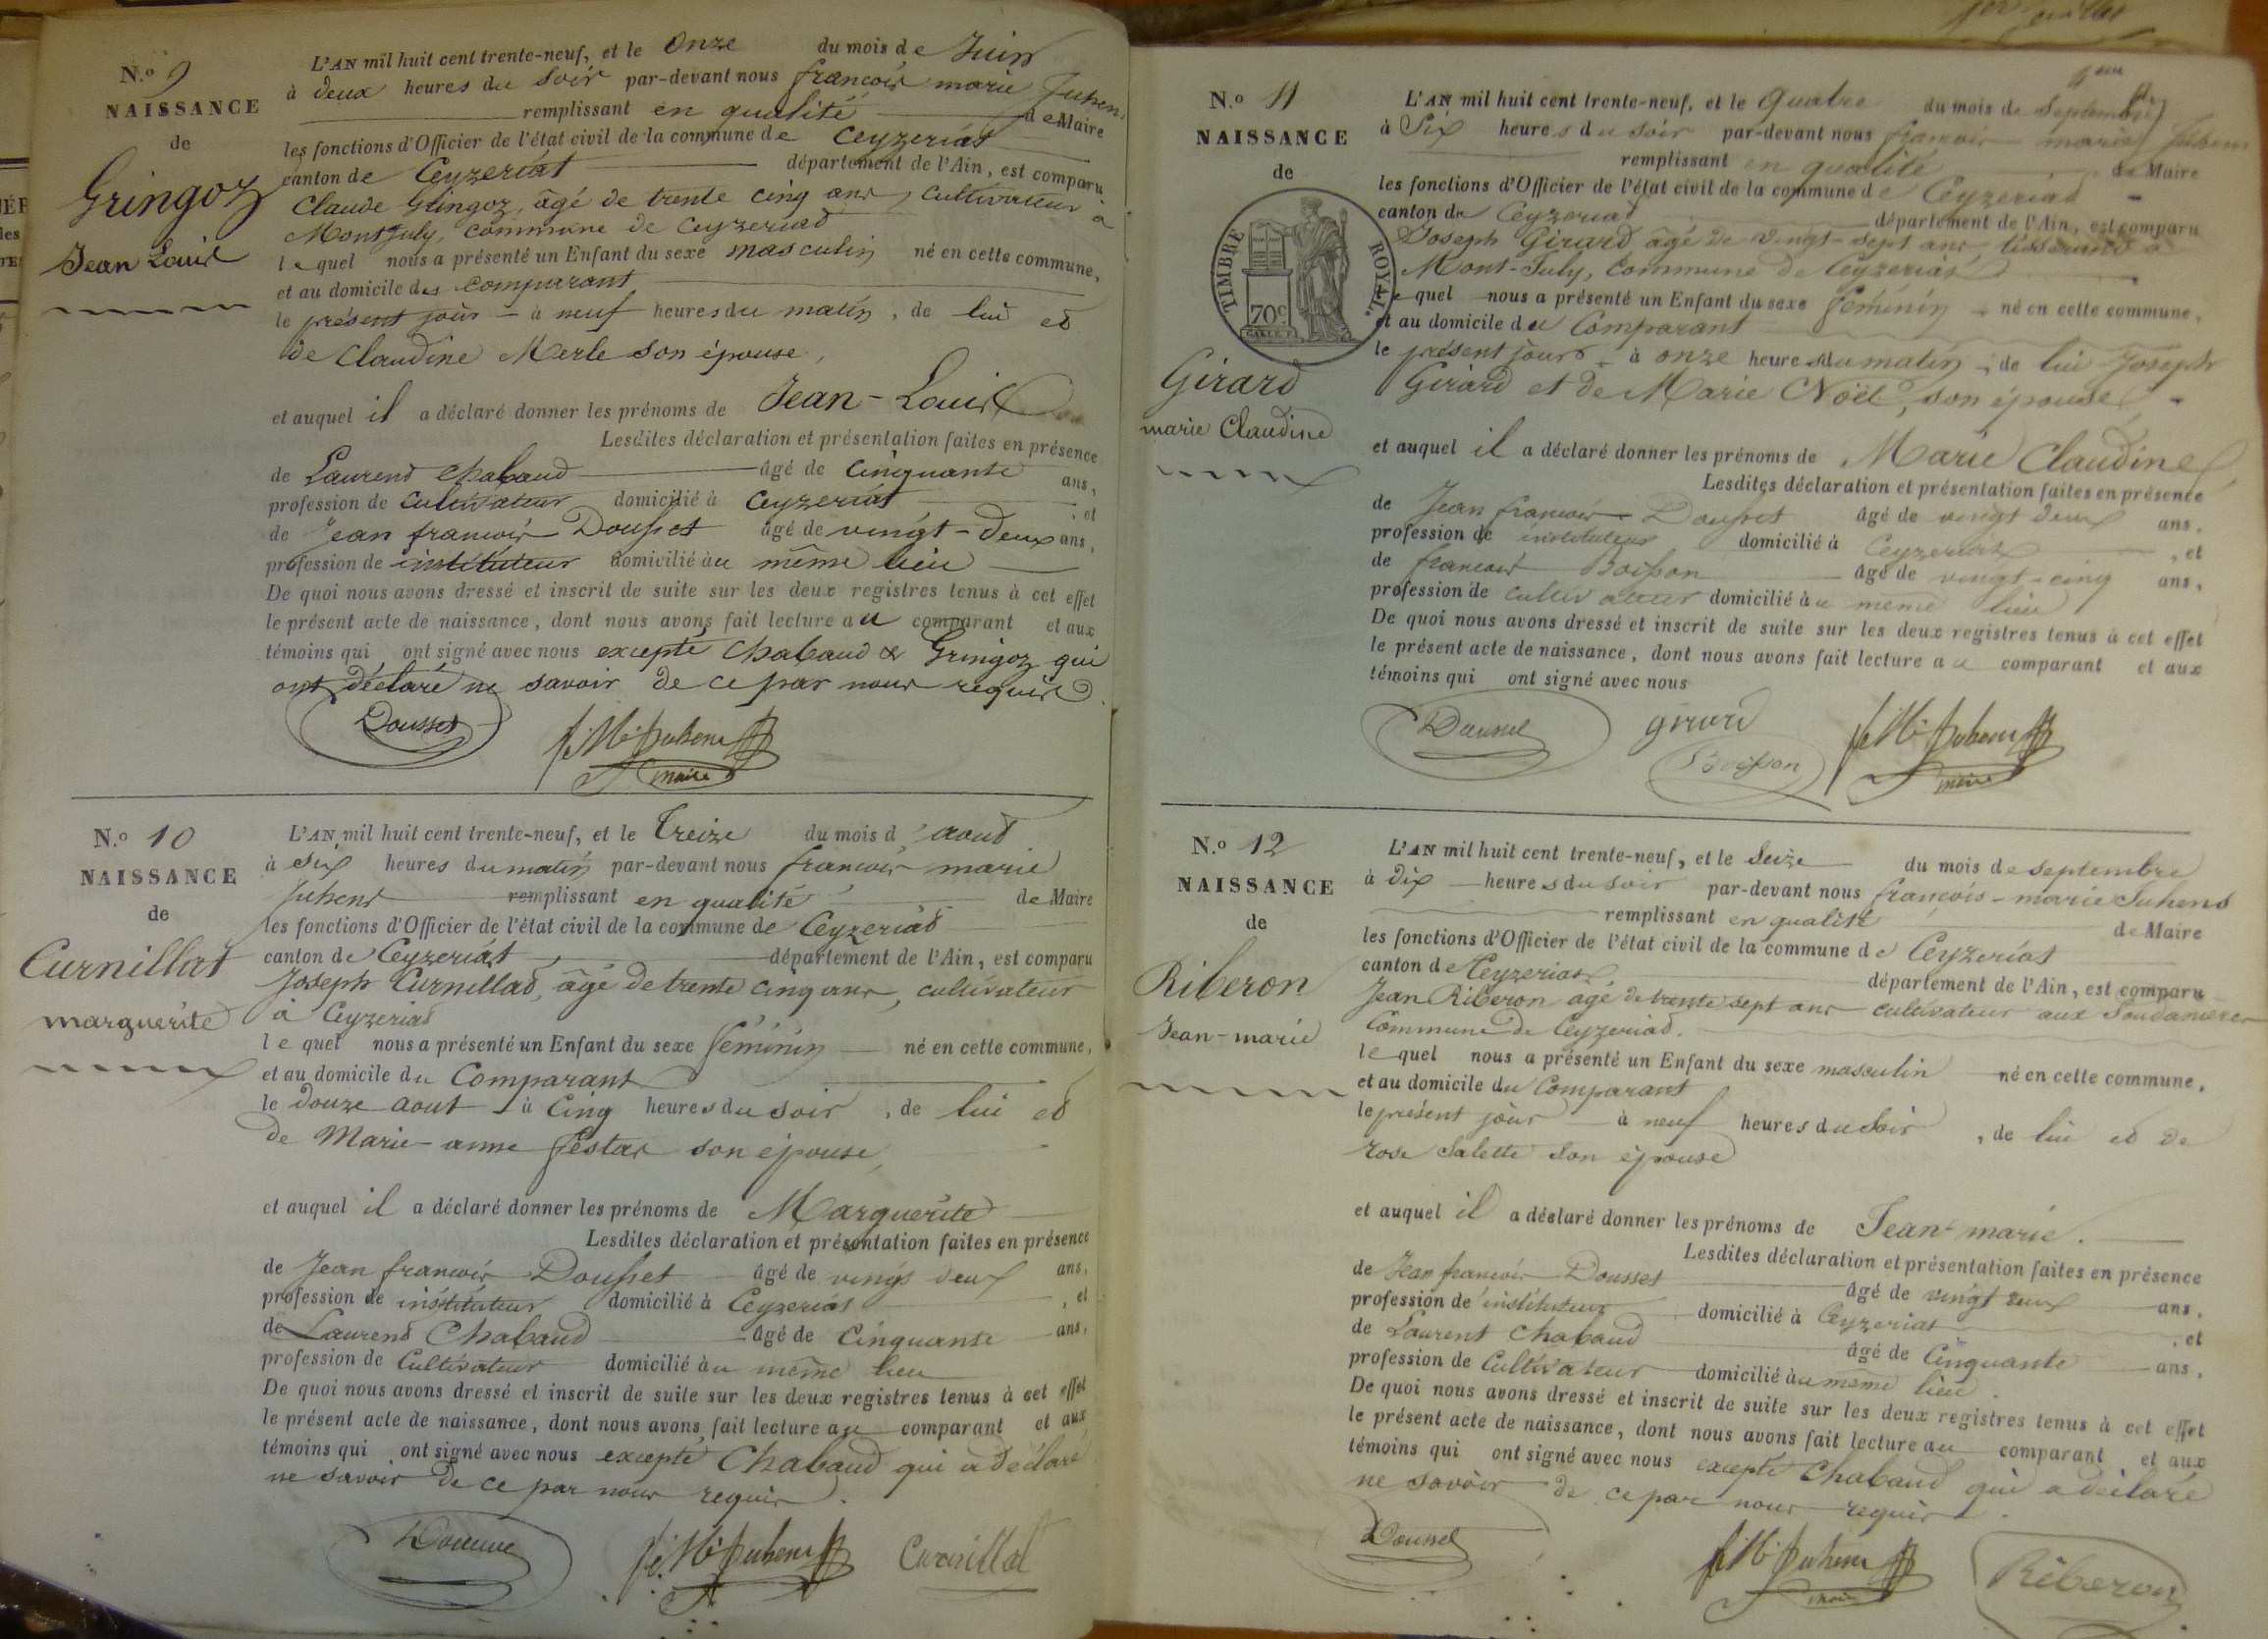 N.o 9
NAISSANCE
de
Gringoz
Jean Louis
L'AN mil huit cent trente-neuf, et le Onze du mois de Juin
à deux heures du soir par-devant nous françois marie Juhens
remplissant en qualité de Maire
les fonctions d'Officier de l'état civil de la commune de Ceyzeriat
canton de Ceyzeriat département de l'Ain, est comparu
Claude Gringoz, âgé de trente cinq ans, cultivateur à
Montjuly, commune de Ceyzeriat
lequel nous a présenté un Enfant du sexe masculin né en cette commune,
et au domicile du comparant
le présent jour à neuf heures du matin, de lui et
de Claudine Merle son épouse,
et auquel il a déclaré donner les prénoms de Jean-Louis
Lesdites déclaration et présentation faites en présence
de Laurend Chabaud âgé de cinquante ans,
profession de cultivateur domicilié à Ceyzeriat, et
de Jean françois Dousset âgé de vingt-deux ans,
profession de instituteur domicilié au même lieu
De quoi nous avons dressé et inscrit de suite sur les deux registres tenus à cet effet
le présent acte de naissance, dont nous avons fait lecture au comparant et aux
témoins qui ont signé avec nous excepté Chabaud & Gringoz qui
ont déclaré ne savoir de ce par nous requis
Dousset
fs. Mie Juhens
maire
N.o 10
NAISSANCE
de
Curnillat
marguerite
L'AN mil huit cent trente-neuf, et le Treize du mois d'aout
à six heures du matin par-devant nous françois marie
Juhens remplissant en qualité de Maire
les fonctions d'Officier de l'état civil de la commune de Ceyzeriat
canton de Ceyzeriat département de l'Ain, est comparu
Joseph Curnillat, âgé de trente cinq ans, cultivateur
à Ceyzeriat
lequel nous a présenté un Enfant du sexe féminin né en cette commune,
et au domicile du Comparant
le douze aout à Cinq heures du soir, de lui et
de Marie-anne Pestas son épouse,
et auquel il a déclaré donner les prénoms de Marguerite
Lesdites déclaration et présentation faites en présence
de Jean françois Dousset âgé de vingt deux ans,
profession de instituteur domicilié à Ceyzeriat, et
de Laurend Chabaud âgé de Cinquante ans,
profession de Cultivateur domicilié au même lieu
De quoi nous avons dressé et inscrit de suite sur les deux registres tenus à cet effet
le présent acte de naissance, dont nous avons fait lecture au comparant et aux
témoins qui ont signé avec nous excepté Chabaud qui a déclaré
ne savoir de ce par nous requis.
Dousset
fs. Mie Juhens
Curnillat
N.o 11
NAISSANCE
de
TIMBRE ROYAL.
70c
Girard
marie Claudine
L'AN mil huit cent trente-neuf, et le Quatre du mois de Septembre
à Six heures du soir par-devant nous françois marie Juhens
remplissant en qualité de Maire
les fonctions d'Officier de l'état civil de la commune de Ceyzeriat
canton de Ceyzeriat département de l'Ain, est comparu
Joseph Girard âgé de vingt-sept ans tisserand à
Mont-July, Commune de Ceyzeriat
lequel nous a présenté un Enfant du sexe féminin né en cette commune,
et au domicile du Comparant
le présent jour à onze heures du matin, de lui Joseph
Girard et de Marie Noël, son épouse,
et auquel il a déclaré donner les prénoms de Marie Claudine
Lesdites déclaration et présentation faites en présence
de Jean françois Dousset âgé de vingt deux ans,
profession de instituteur domicilié à Ceyzeriat, et
de françois Boisson âgé de vingt-cinq ans,
profession de cultivateur domicilié au même lieu
De quoi nous avons dressé et inscrit de suite sur les deux registres tenus à cet effet
le présent acte de naissance, dont nous avons fait lecture au comparant et aux
témoins qui ont signé avec nous
Dousset
girard
Boisson
fs. Mie Juhens
maire
N.o 12
NAISSANCE
de
Riberon
Jean-marie
L'AN mil huit cent trente-neuf, et le Seize du mois de septembre
à dix heures du soir par-devant nous françois-marie Juhens
remplissant en qualité de Maire
les fonctions d'Officier de l'état civil de la commune de Ceyzeriat
canton de Ceyzeriat département de l'Ain, est comparu
Jean Riberon agé de trente sept ans cultivateur aux
Commune de Ceyzeriat.
lequel nous a présenté un Enfant du sexe masculin né en cette commune,
et au domicile du Comparant
le présent jour à neuf heures du soir, de lui et de
rose Salette son épouse
et auquel il a déclaré donner les prénoms de Jean-marie.
Lesdites déclaration et présentation faites en présence
de Jean françois Dousset âgé de vingt deux ans,
profession de instituteur domicilié à Ceyzeriat, et
de Laurent Chabaud âgé de Cinquante ans,
profession de Cultivateur domicilié au même lieu.
De quoi nous avons dressé et inscrit de suite sur les deux registres tenus à cet effet
le présent acte de naissance, dont nous avons fait lecture au comparant et aux
témoins qui ont signé avec nous excepté Chabaud qui a déclaré
ne savoir de ce par nous requis.
Dousset
fs. Mie Juhens
maire
Riberon